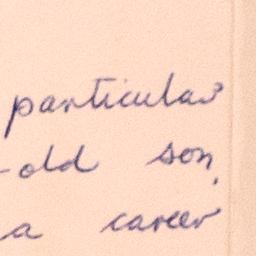 particular
-old son,
a career